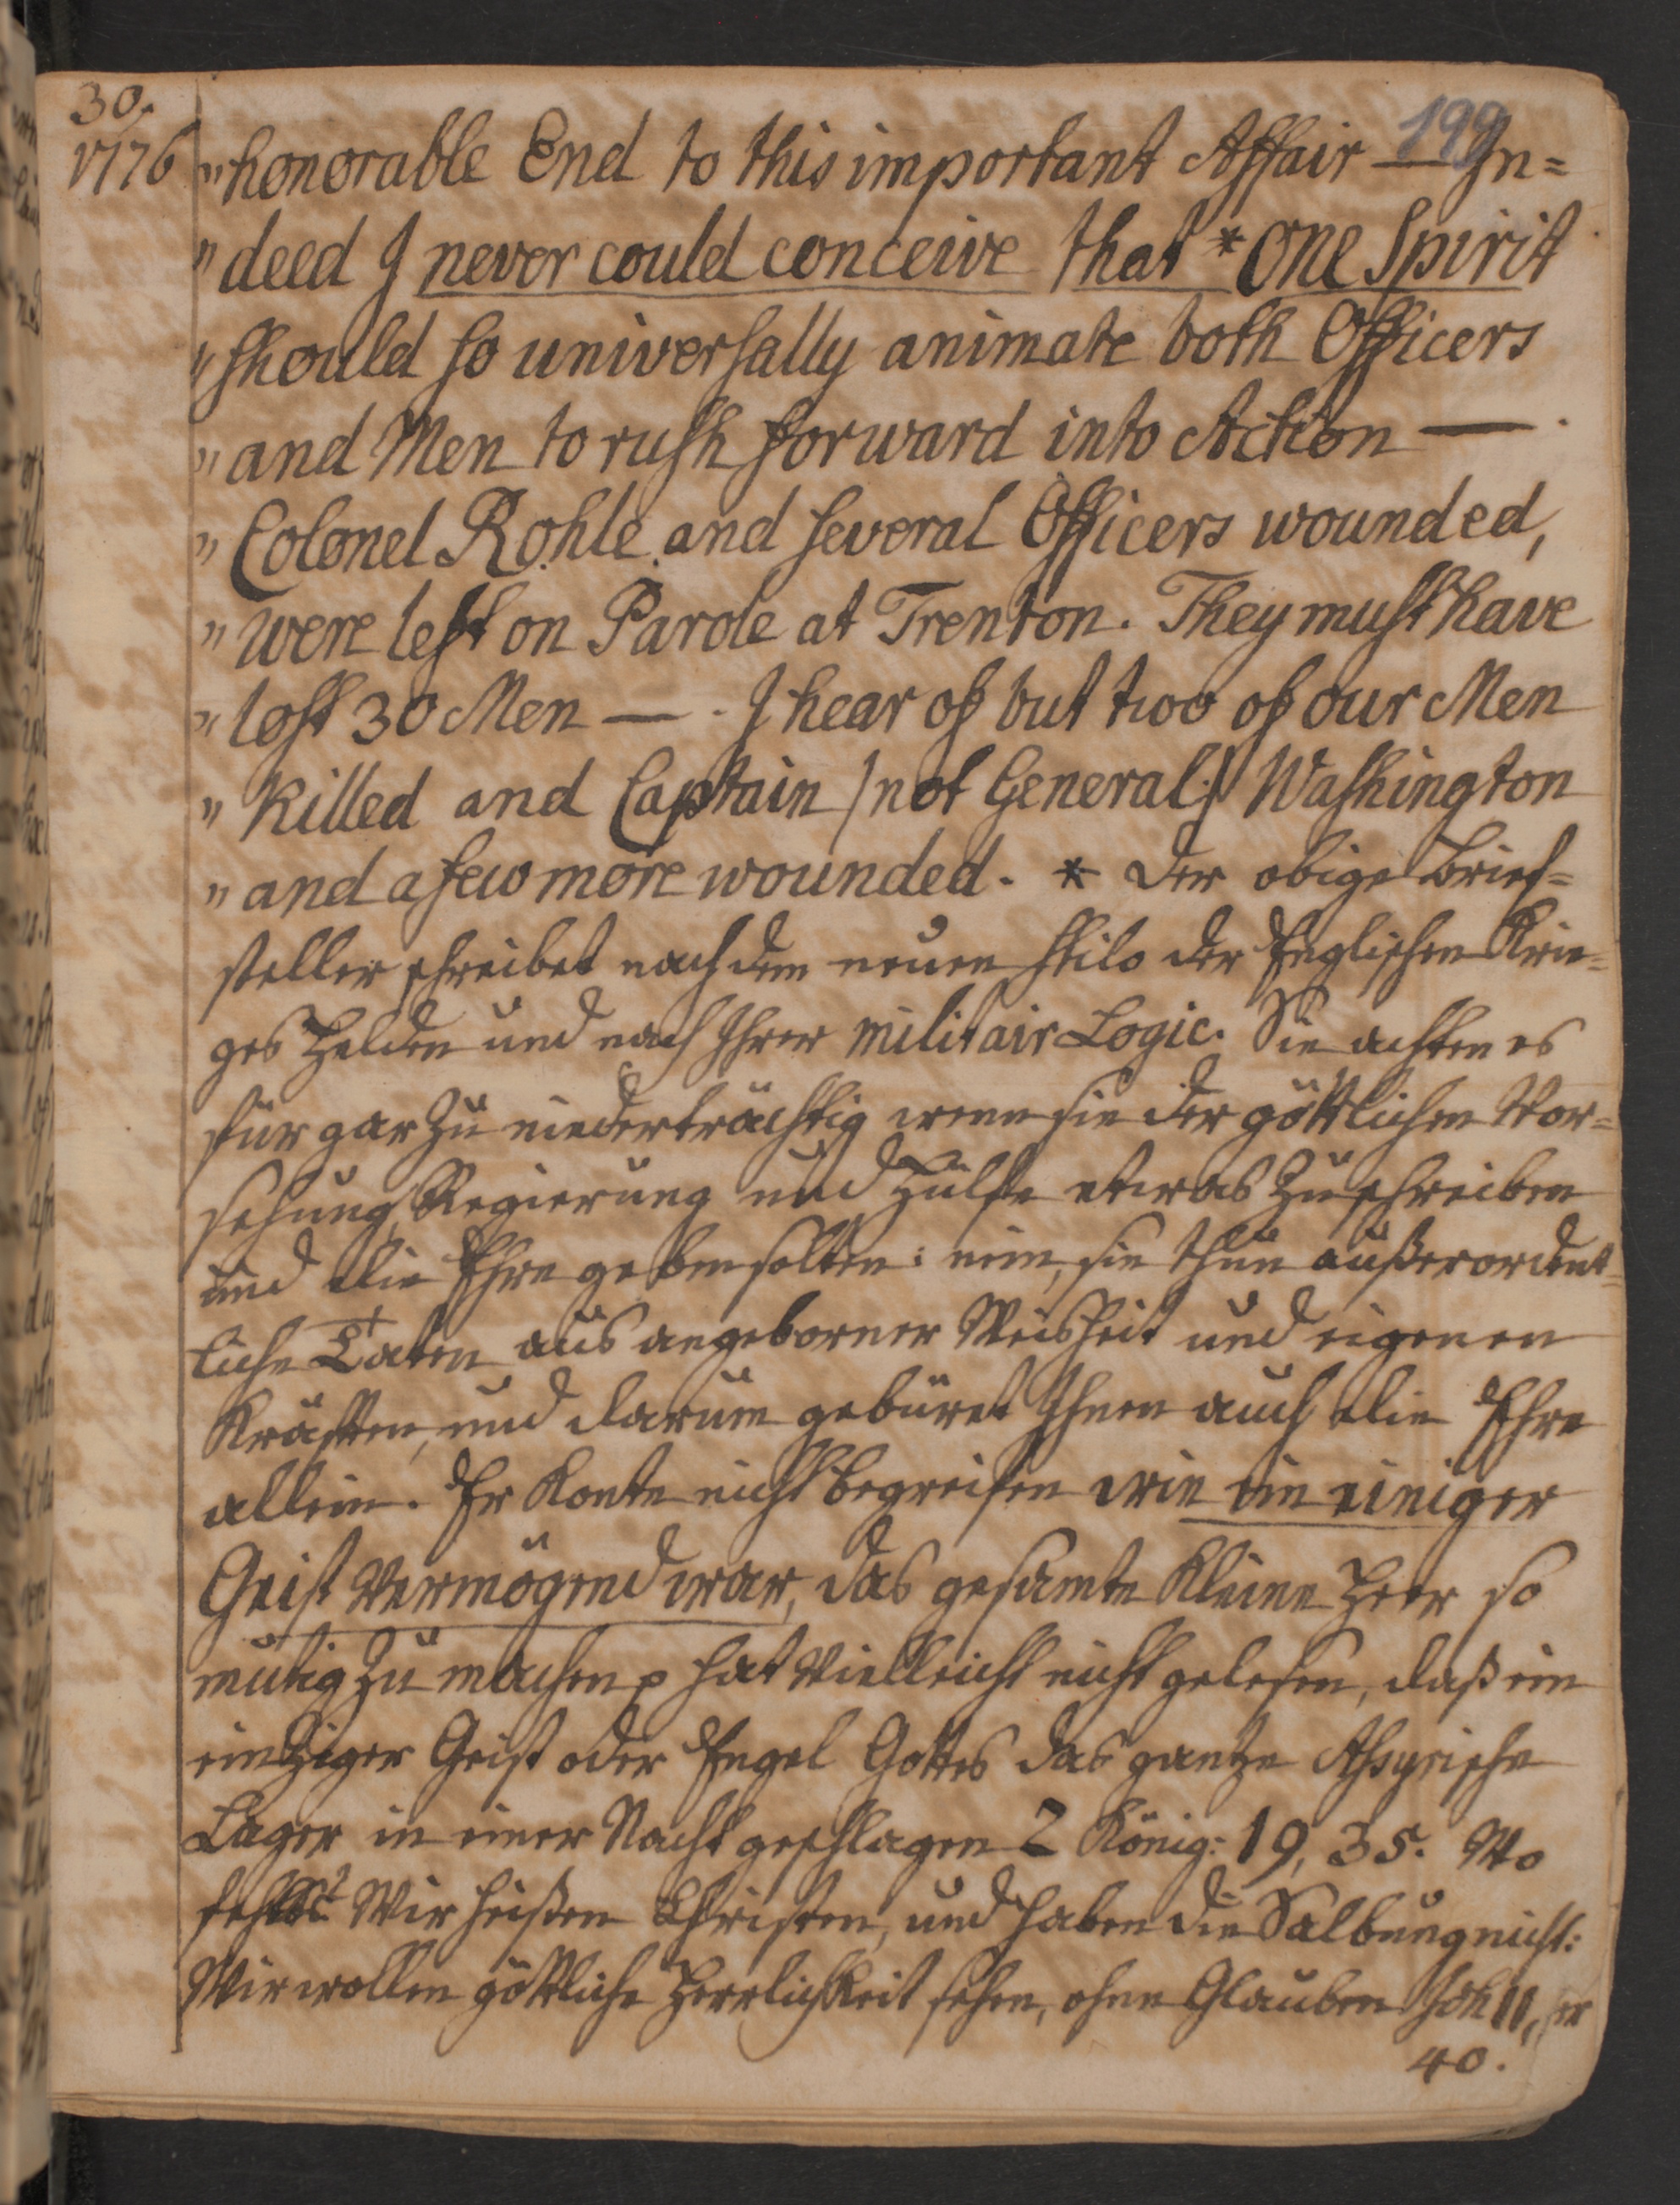 30.
199
1776
"honorable End to this important Affair — In=
"deed I never could conceive that * one Spirit
"should so universally animate both Officers
"and Men to rush forward into Action — .
"Colonel Rohle and several Officers wounded,
"were left on Parole at Trenton. They must have
"lost 30 Men — . I hear of but two of our Men
"killed and Captain /:not General:/ Washington
"and a few more wounded. * der obige Brief=
steller schreibet nach dem neuen Stilo der Englischen Krie=
ges Helden und nach Ihrer militair Logic. Sie achten es
für gar zu niederträchtig wenn sie der göttlichen Vor=
sehung, Regierung und Hülfe etwas zuschreiben
und die Ehre geben solten: nein, sie thun außerordent=
liche Taten aus angeborner Weisheit und eigenen
Kräften, und darum gebüret Ihnen auch die Ehre
allein. Er konte nicht begreifen wie ein einiger
Geist vermögend war, das gesamte kleine Heer so
mutig zu machen, hat vielleicht nicht gelesen, daß ein
einziger Geist oder Engel Gottes das gantze Assyrische
Lager in einer Nacht geschlagen 2 König: 19, 35. Wo
fehlts? Wir heißen Christen, und haben die Salbung nicht:
Wir wollen göttliche Herrlichkeit sehen, ohne Glauben Joh 11,
40.